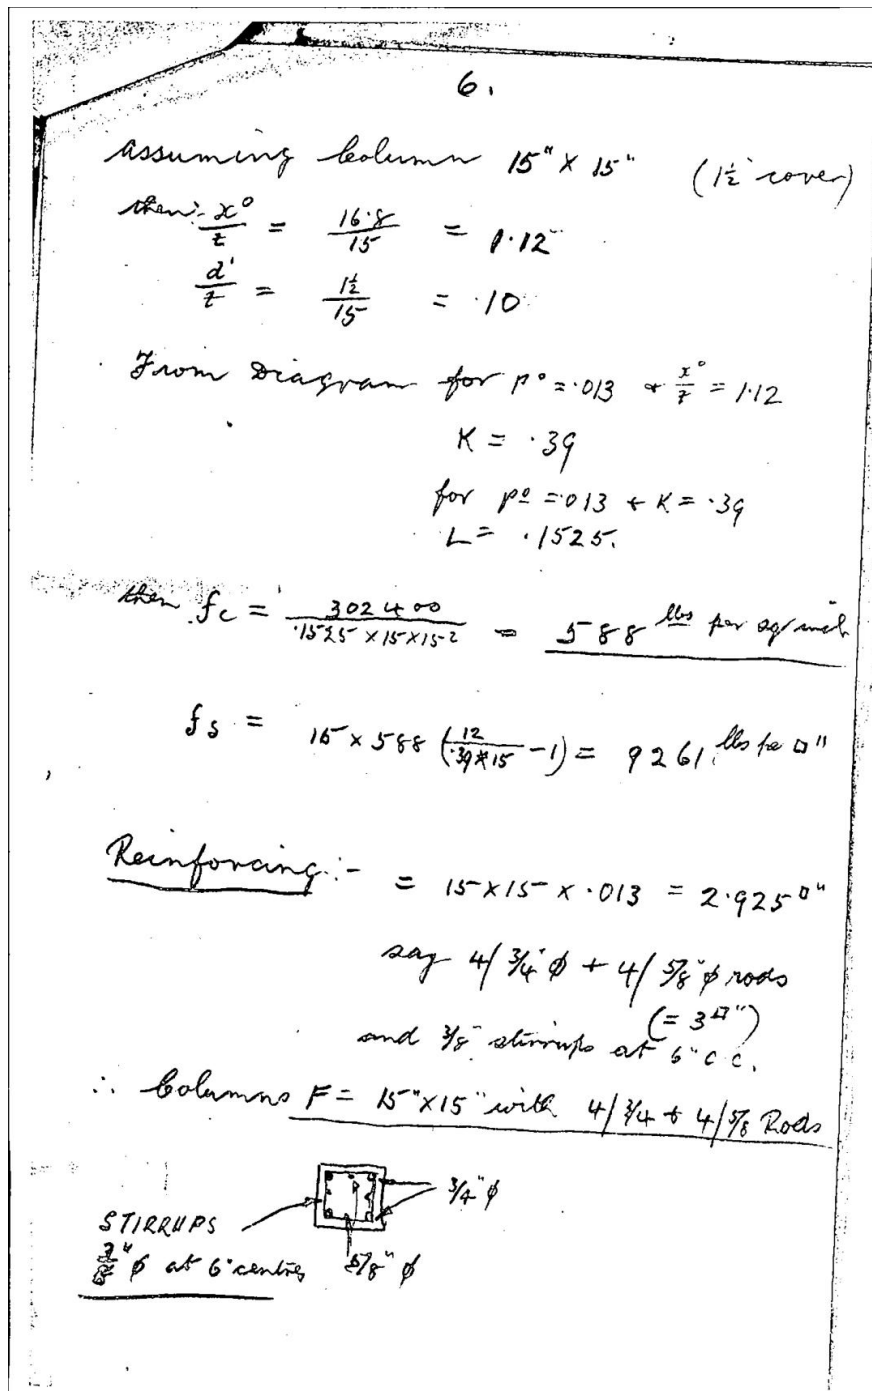 6.
Assuming Column 15" × 15" (1½" cover)
then:- x°/t = 16·8/15 = 1·12
d'/t = 1½/15 = ·10
From Diagram for p° = ·013 + x°/t = 1·12
K = ·39
for p° = ·013 + K = ·39
L = ·1525.
then fc = 302400/·1525 × 15 × 15² = 588 lbs per sq/inch
fs = 15 × 588 (12/·39×15 - 1) = 9261 lbs per □"
Reinforcing:- = 15 × 15 × ·013 = 2·925 □"
say 4/ ¾" φ + 4/ ⅝" φ rods
(= 3 □")
and ⅜" stirrups at 6" c.c.
∴ Columns F = 15" × 15" with 4/ ¾ + 4/ ⅝ Rods
¾" φ
STIRRUPS
⅜" φ at 6" centres
⅝" φ